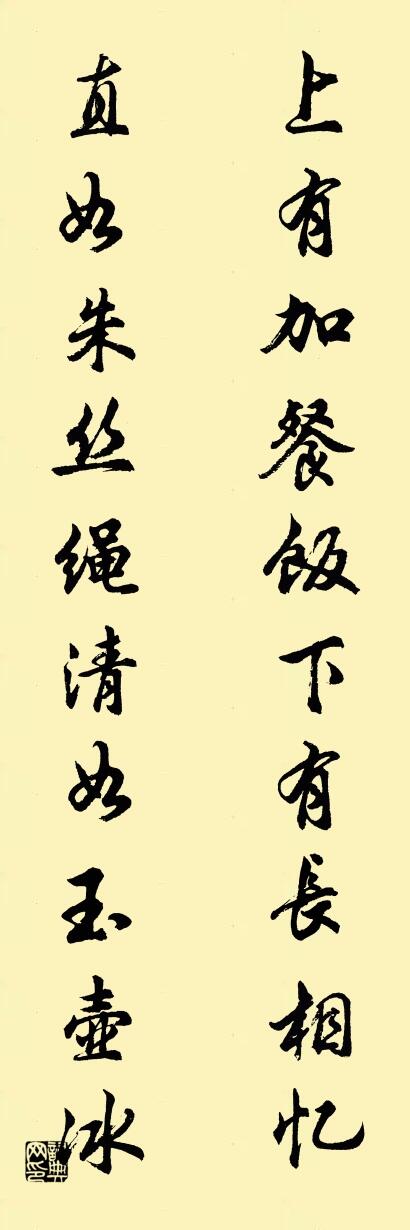 上有加餐飯下有長相忆
直如朱丝绳清如玉壶冰